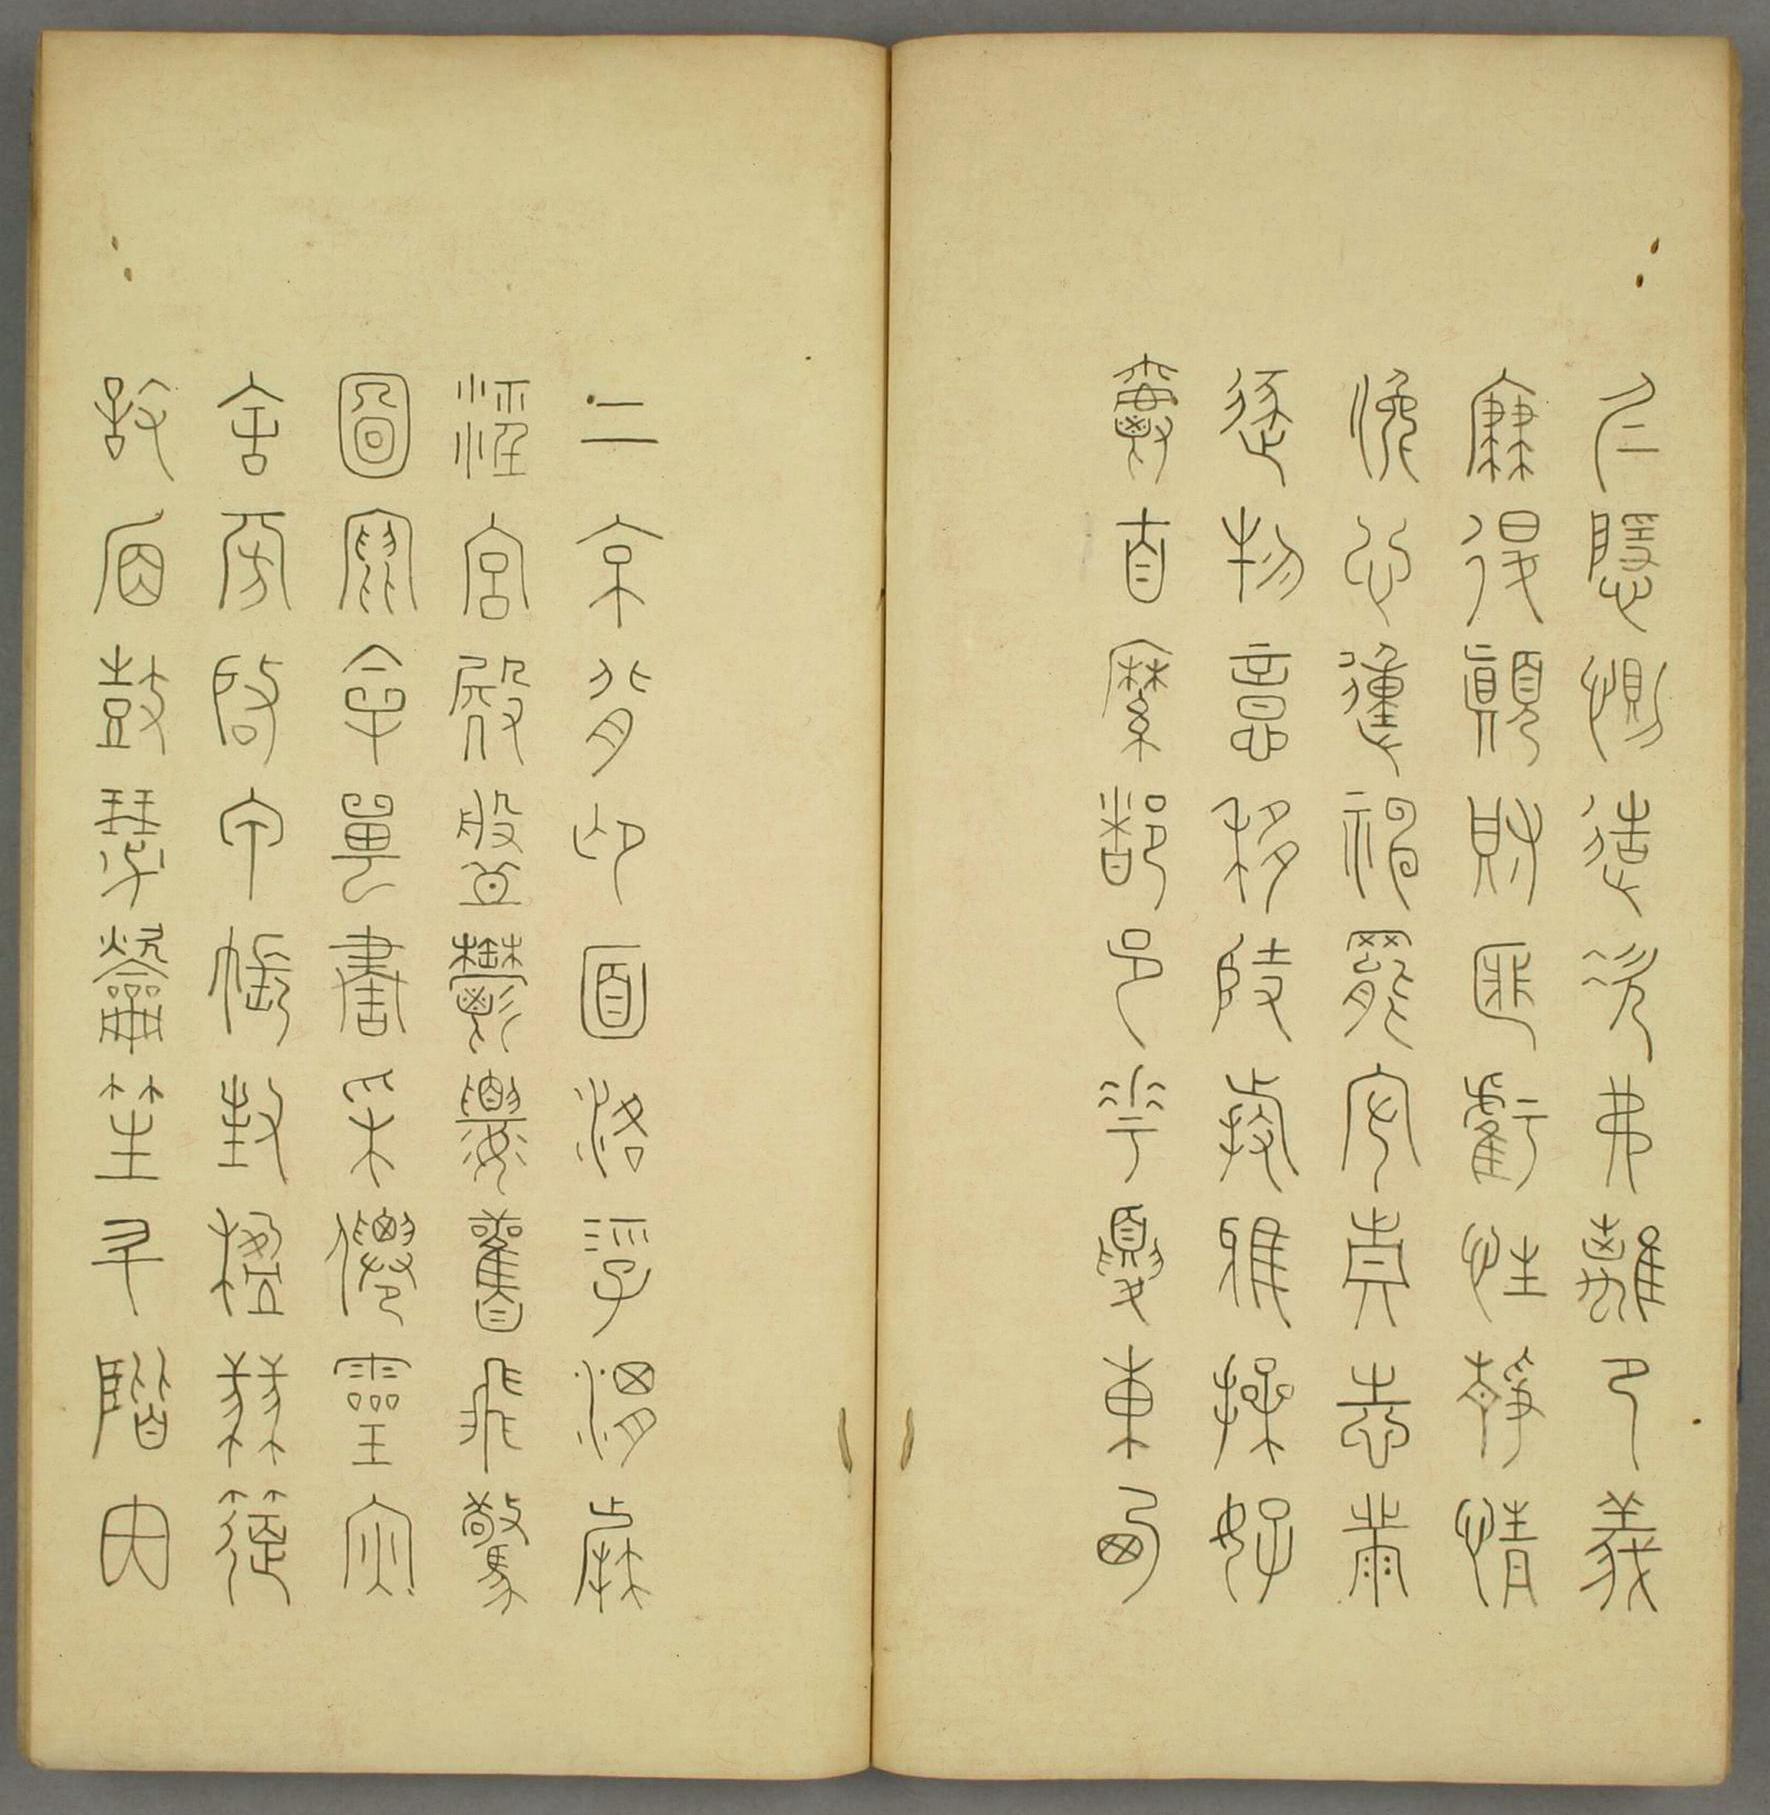 仁隱惻造次弗離卪義
廉退顛沛匪虧性靜情
逸心動神罷守真志㒼
逐物意移堅持雅操好
爵自縻都邑華夏東西
二京背邙面洛浮渭據
涇宮殿盤鬱樓觀飛驚
圖寫禽獸畫采僊靈丙
舍旁啟甲帳對楹肆筵
設席鼓瑟龡笙升階內